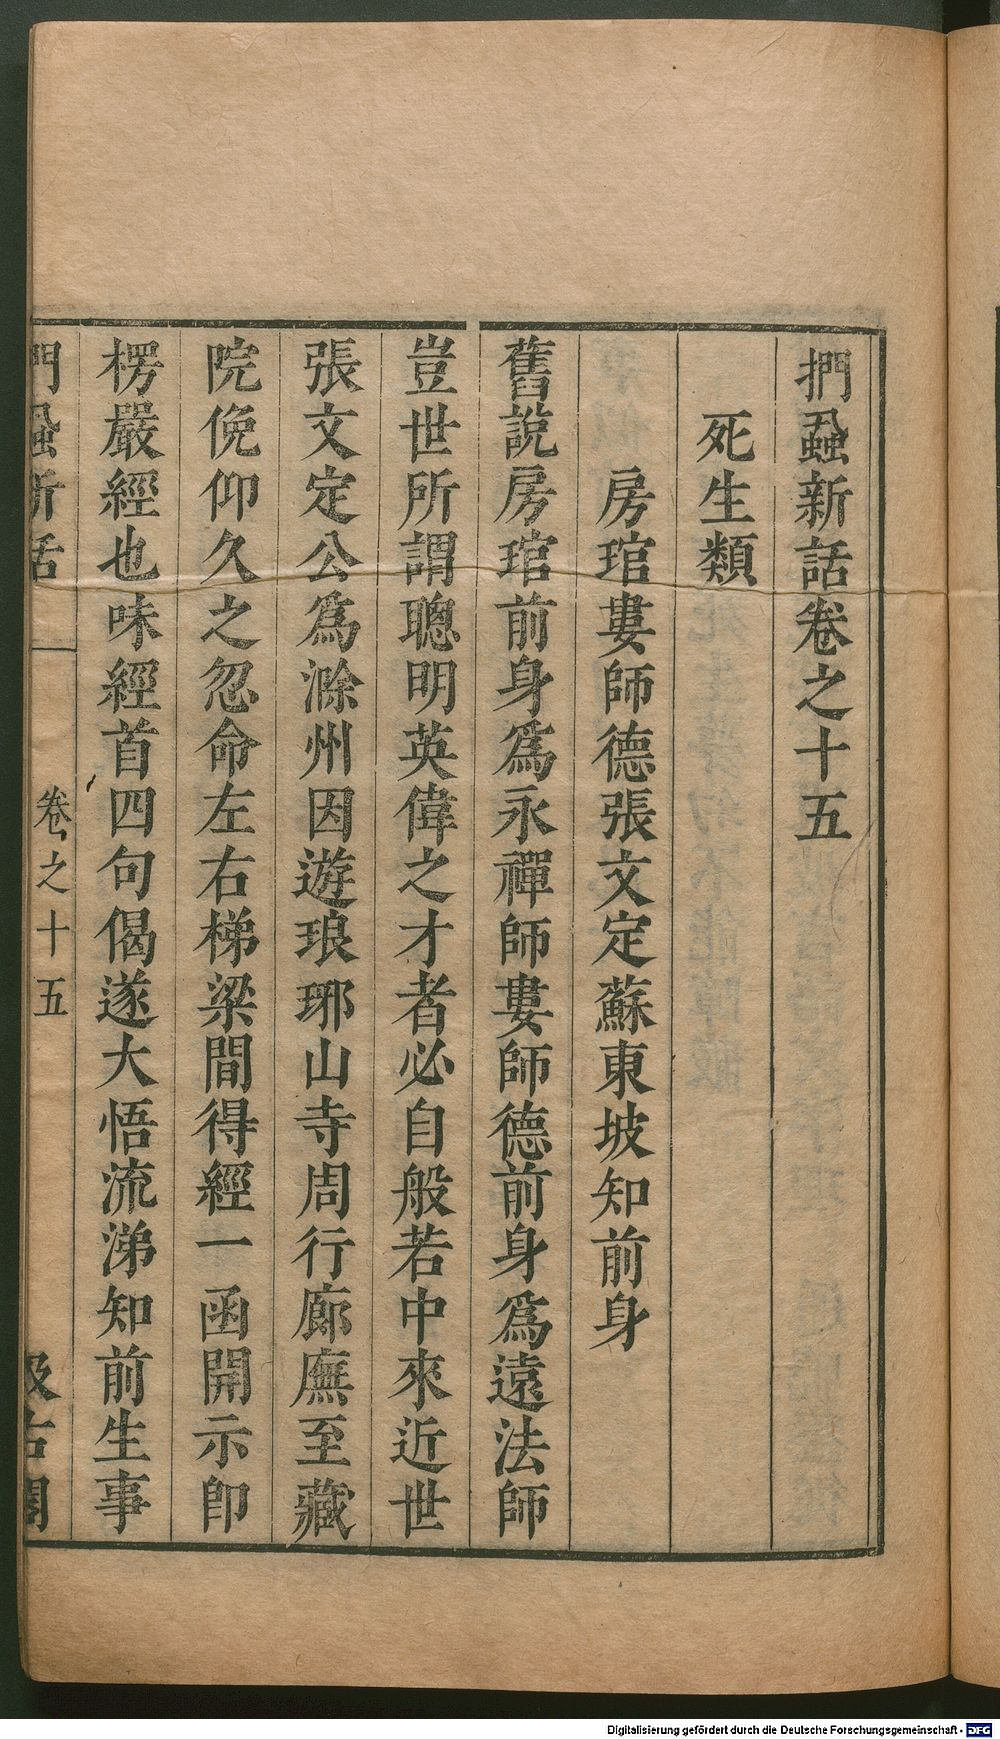 捫蝨新話卷之十五
死生類
房琯婁師德張文定蘇東坡知前身
舊說房琯前身爲永禪師婁師德前身爲遠法師
豈世所謂聰明英偉之才者必自般若中來近世
張文定公爲滁州因遊琅琊山寺周行廊廡至藏
院俛仰久之忽命左右梯梁間得經一函開示卽
楞嚴經也味經首四句偈遂大悟流涕知前生事
捫蝨新話 卷之十五 一 汲古閣
Digitalisierung gefördert durch die Deutsche Forschungsgemeinschaft - DFG